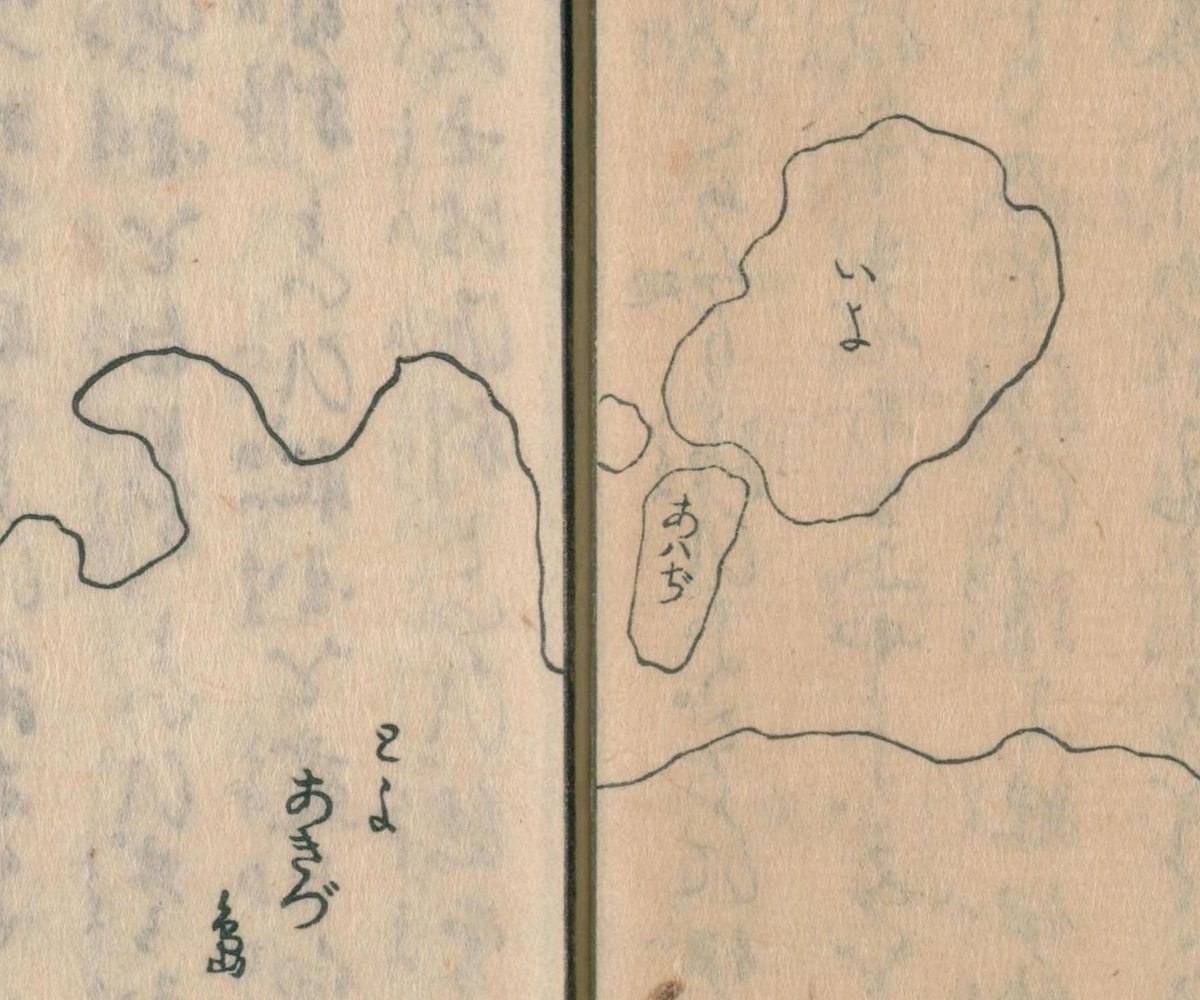 いよ
あハぢ
とよ
あきづ
島